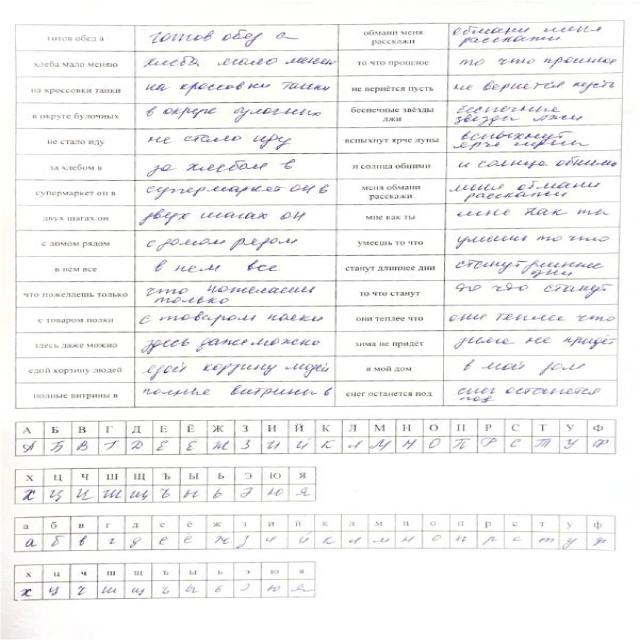 готов обед а готов обед а обмани меня расскажи обмани меня расскажи
хлеба мало меняю хлеба мало меняю то что прошлое то что прошлое
на кроссовки тапки на кроссовки тапки не вернётся пусть не вернется пусть
в округе булочных в округе булочных беспечные звёзды лжи беспечные звезды лжи
не стало иду не стало иду вспыхнут ярче луны вспыхнут ярче луны
за хлебом в за хлебом в и солнца обними и солнца обними
супермаркет он в супермаркет он в меня обмани расскажи меня обмани расскажи
двух шагах он двух шагах он мне как ты мне как ты
с домом рядом с домом рядом умеешь то что умеешь то что
в нем все в нем все станут длиннее дни станут длиннее дни
что пожелаешь только что пожелаешь только то что станут то что станут
с товаром полки с товаром полки они теплее что они теплее что
здесь даже можно здесь даже можно зима не придёт зима не придёт
едой корзину людей едой корзину людей в мой дом в мой дом
полные витрины в полные витрины в снег останется под снег останется под
А Б В Г Д Е Ё Ж З И Й К Л М Н О П Р С Т У Ф
А Б В Г Д Е Ё Ж З И Й К Л М Н О П Р С Т У Ф
Х Ц Ч Ш Щ Ъ Ы Ь Э Ю Я
Х Ц Ч Ш Щ Ъ Ы Ь Э Ю Я
а б в г д е ё ж з и й к л м н о п р с т у ф
а б в г д е ё ж з и й к л м н о п р с т у ф
х ц ч ш щ ъ ы ь э ю я
х ц ч ш щ ъ ы ь э ю я